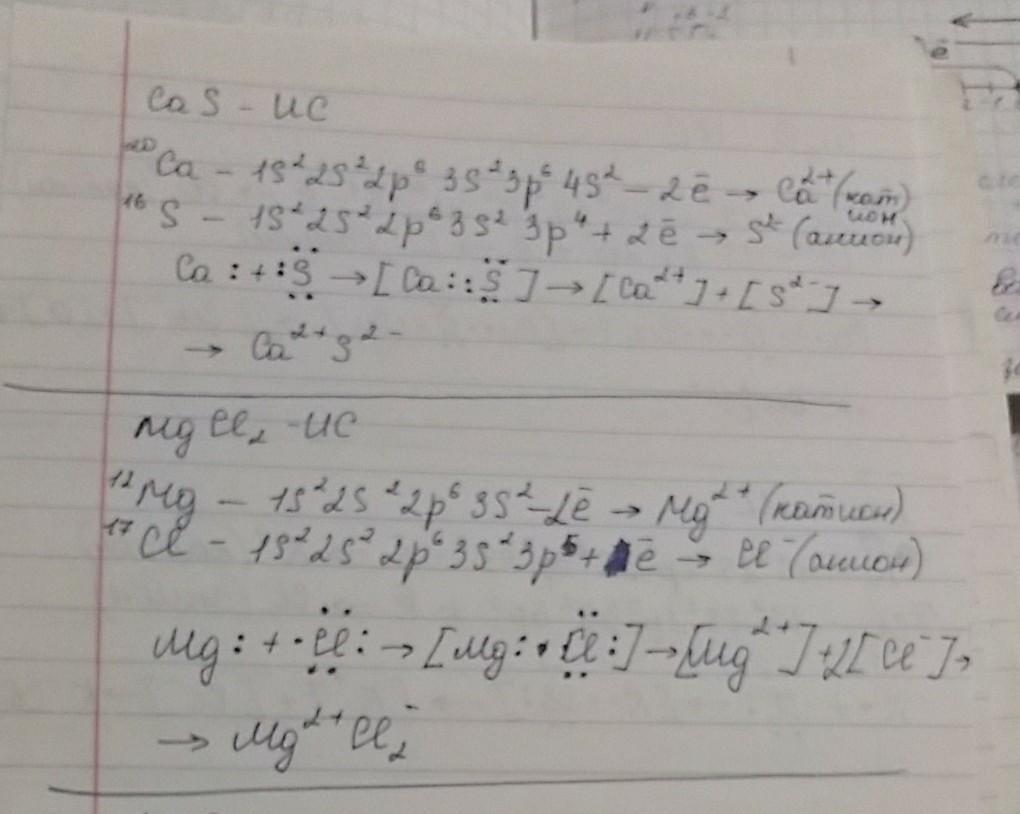 CaS - ИС
²⁰Ca - 1S² 2S² 2p⁶ 3S² 3p⁶ 4S² - 2ē → Ca²⁺ (катион)
¹⁶S - 1S² 2S² 2p⁶ 3S² 3p⁴ + 2ē → S²⁻ (анион)
Ca : + :S̤̈ → [Ca : : S̤̈ ] → [Ca²⁺] + [S²⁻] →
→ Ca²⁺ S²⁻
MgCl₂ - ИС
¹²Mg - 1S² 2S² 2p⁶ 3S² - 2ē → Mg²⁺ (катион)
¹⁷Cl - 1S² 2S² 2p⁶ 3S² 3p⁵ + ē → Cl⁻ (анион)
Mg : + ·C̤̈l : → [Mg : · C̤̈l :] → [Mg²⁺] + 2[Cl⁻] →
→ Mg²⁺ Cl₂⁻